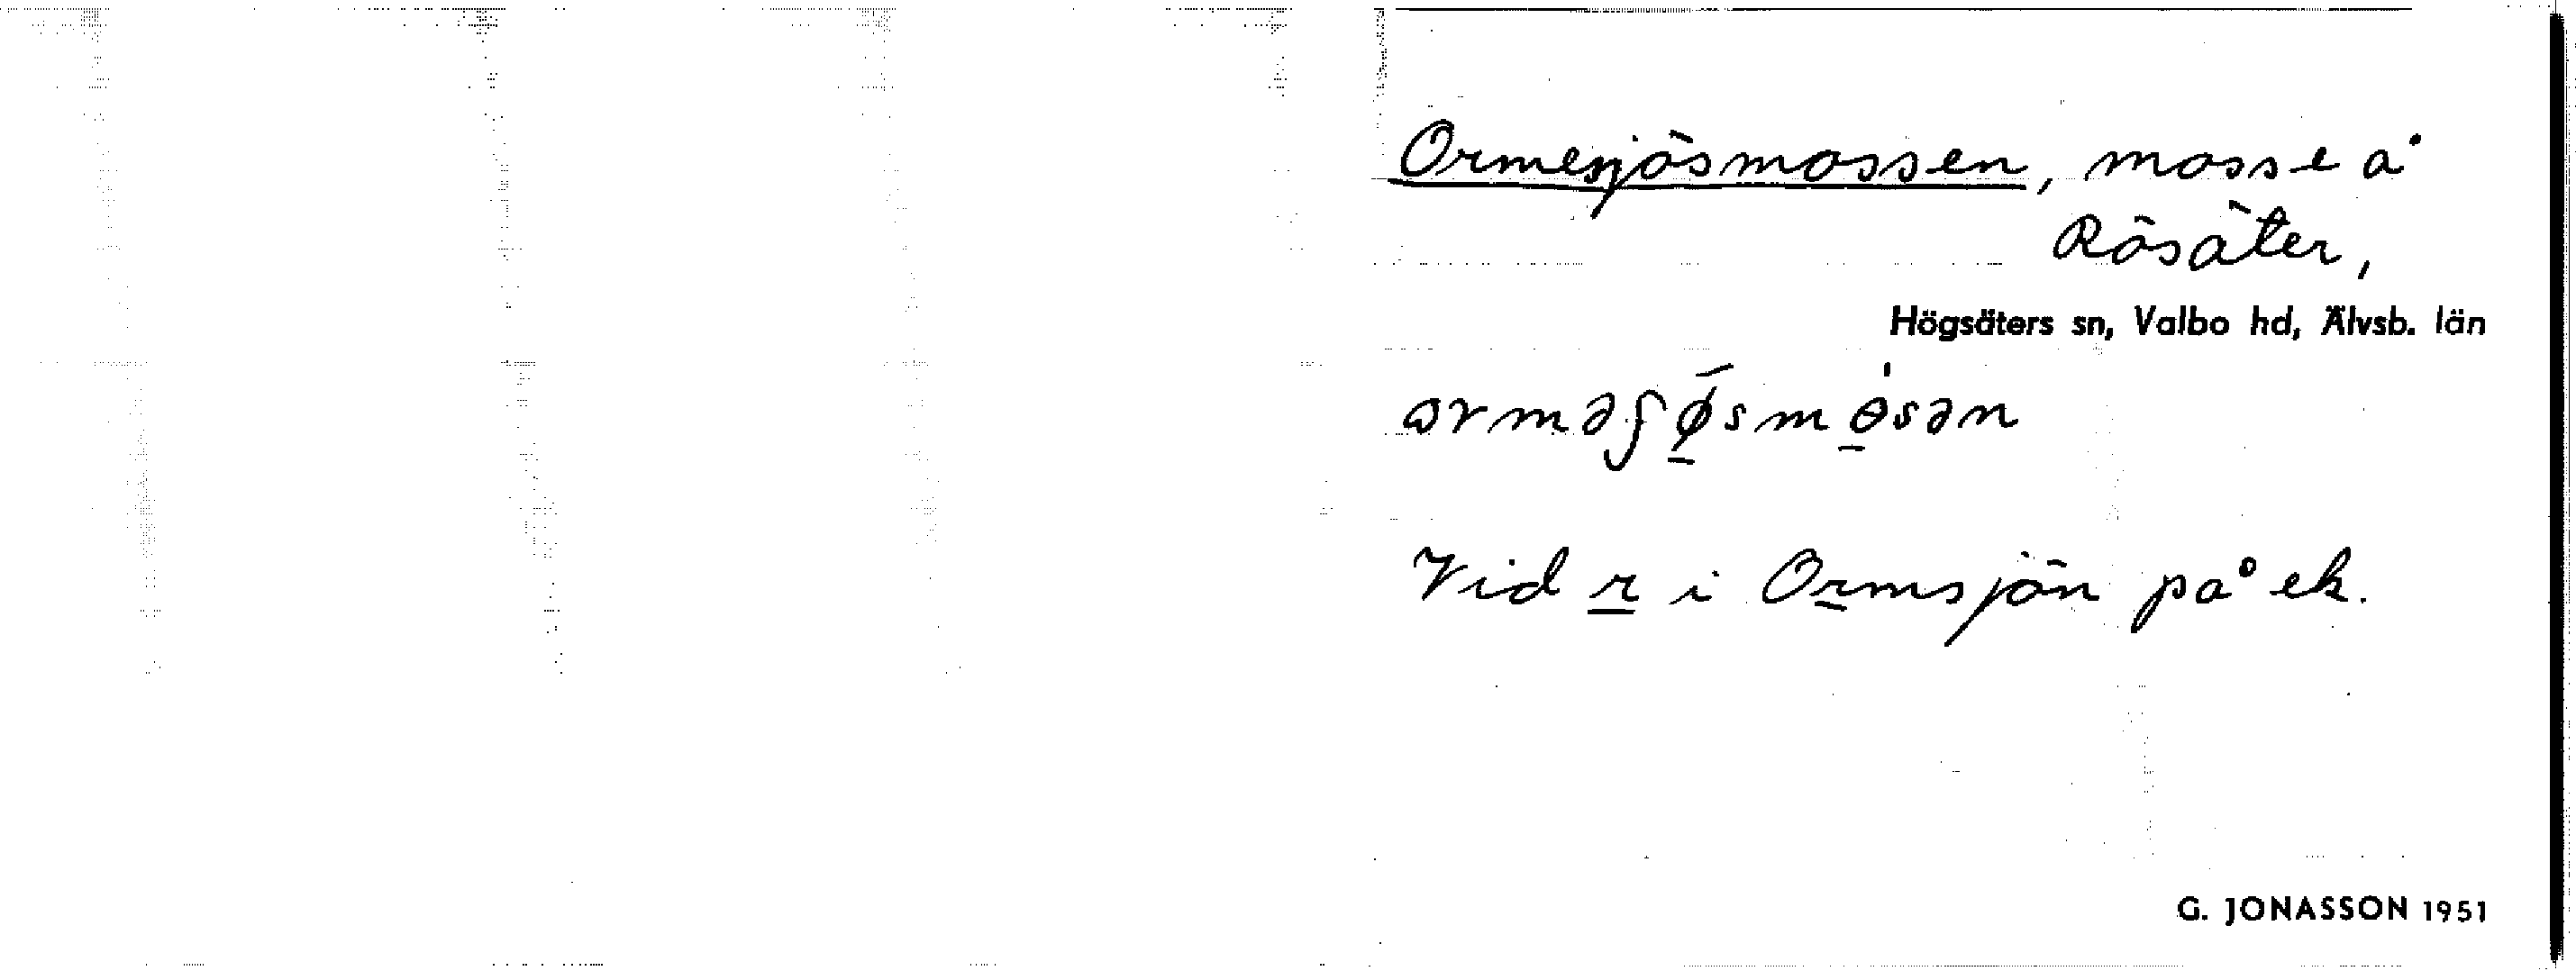 Ormesjösmossen, mosse å
Rösäter,
Högsäters sn, Valbo hd, Älvsb. län
Vid r i Ormsjön på ek.
G. JONASSON 1951